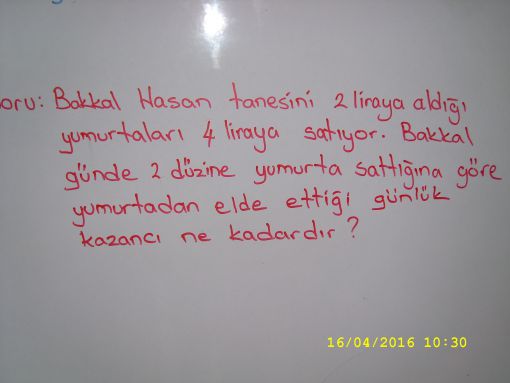 oru: Bakkal Hasan tanesini 2 liraya aldığı
yumurtaları 4 liraya satıyor. Bakkal
günde 2 düzine yumurta sattığına göre
yumurtadan elde ettiği günlük
kazancı ne kadardır?
16/04/2016 10:30